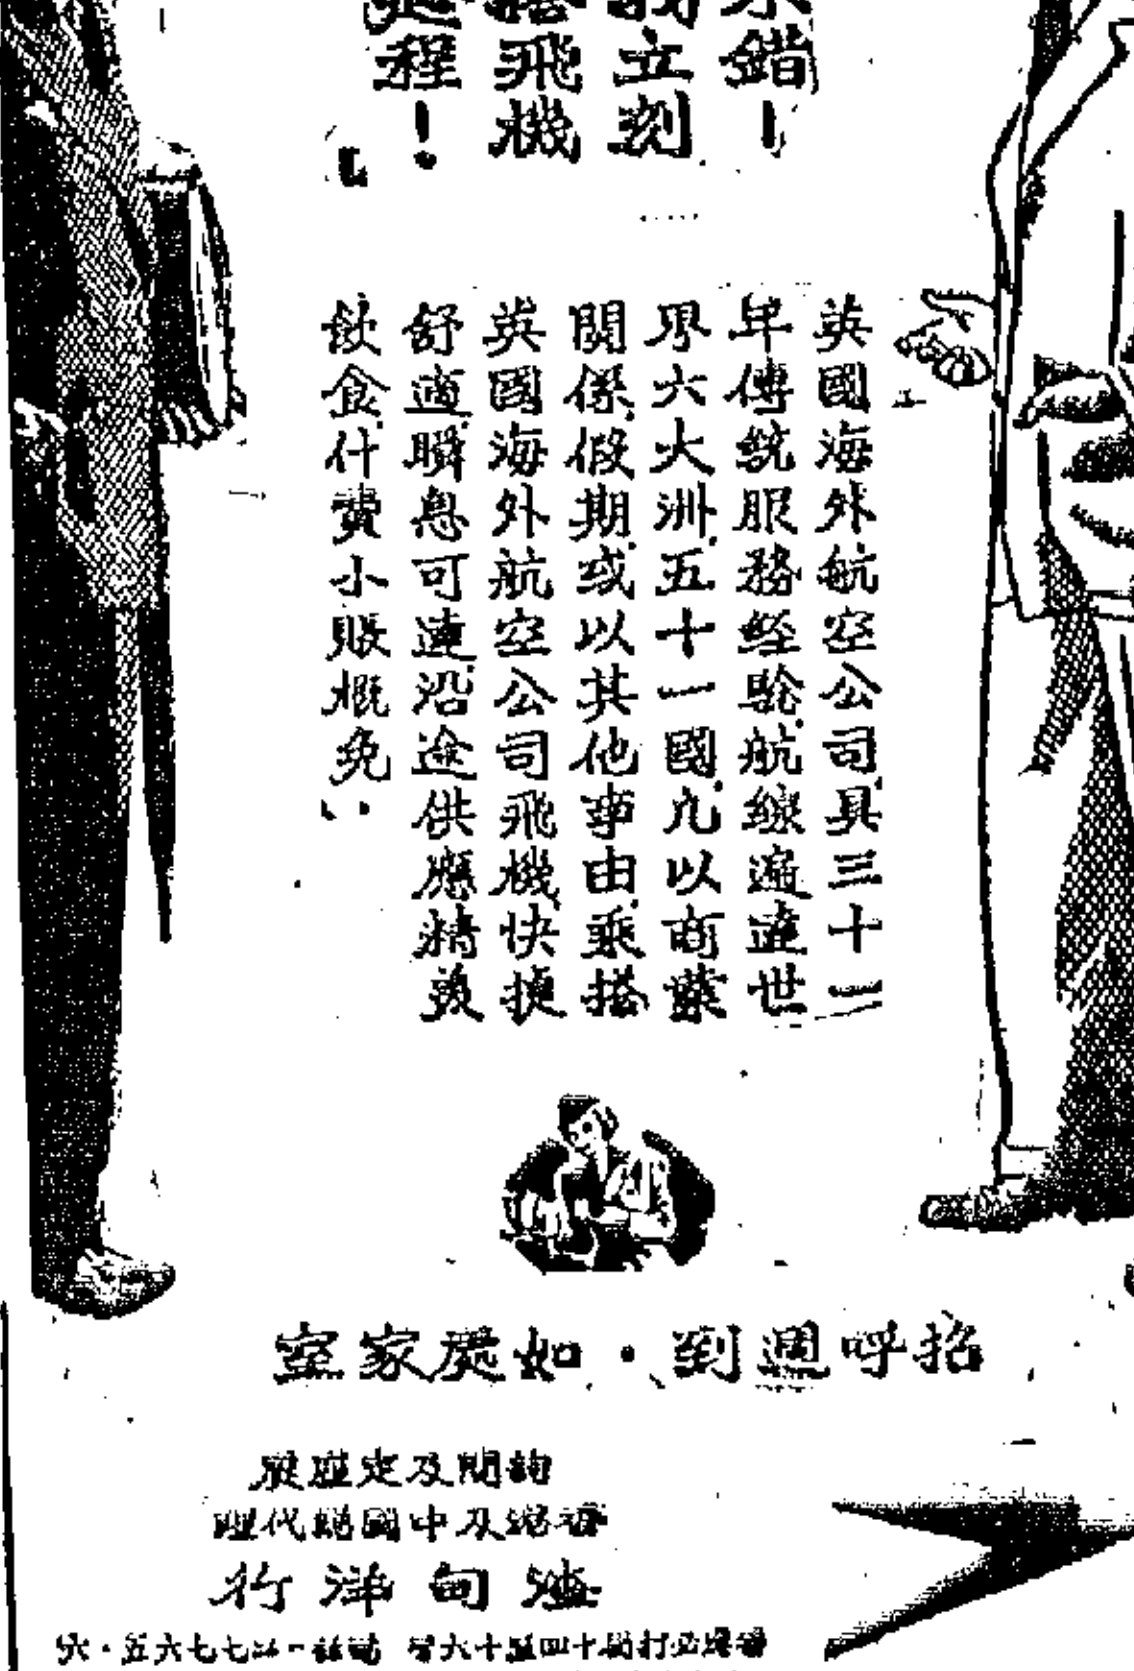 錯！
立刻
搭飛機
程！
英國海外航空公司，具三十二
年傳統服務經驗，航線遍達世
界六大洲，五十一國，凡以商業
關係，假期，或以其他事由，乘搭
英國海外航空公司飛機，快捷
舒適，瞬息可達，沿途供應精美
飲食，什費小賬概免，
招呼週到・如處家室
詢問及定座處
香港及中國總代理
渣甸洋行
香港必打街十四至十六號